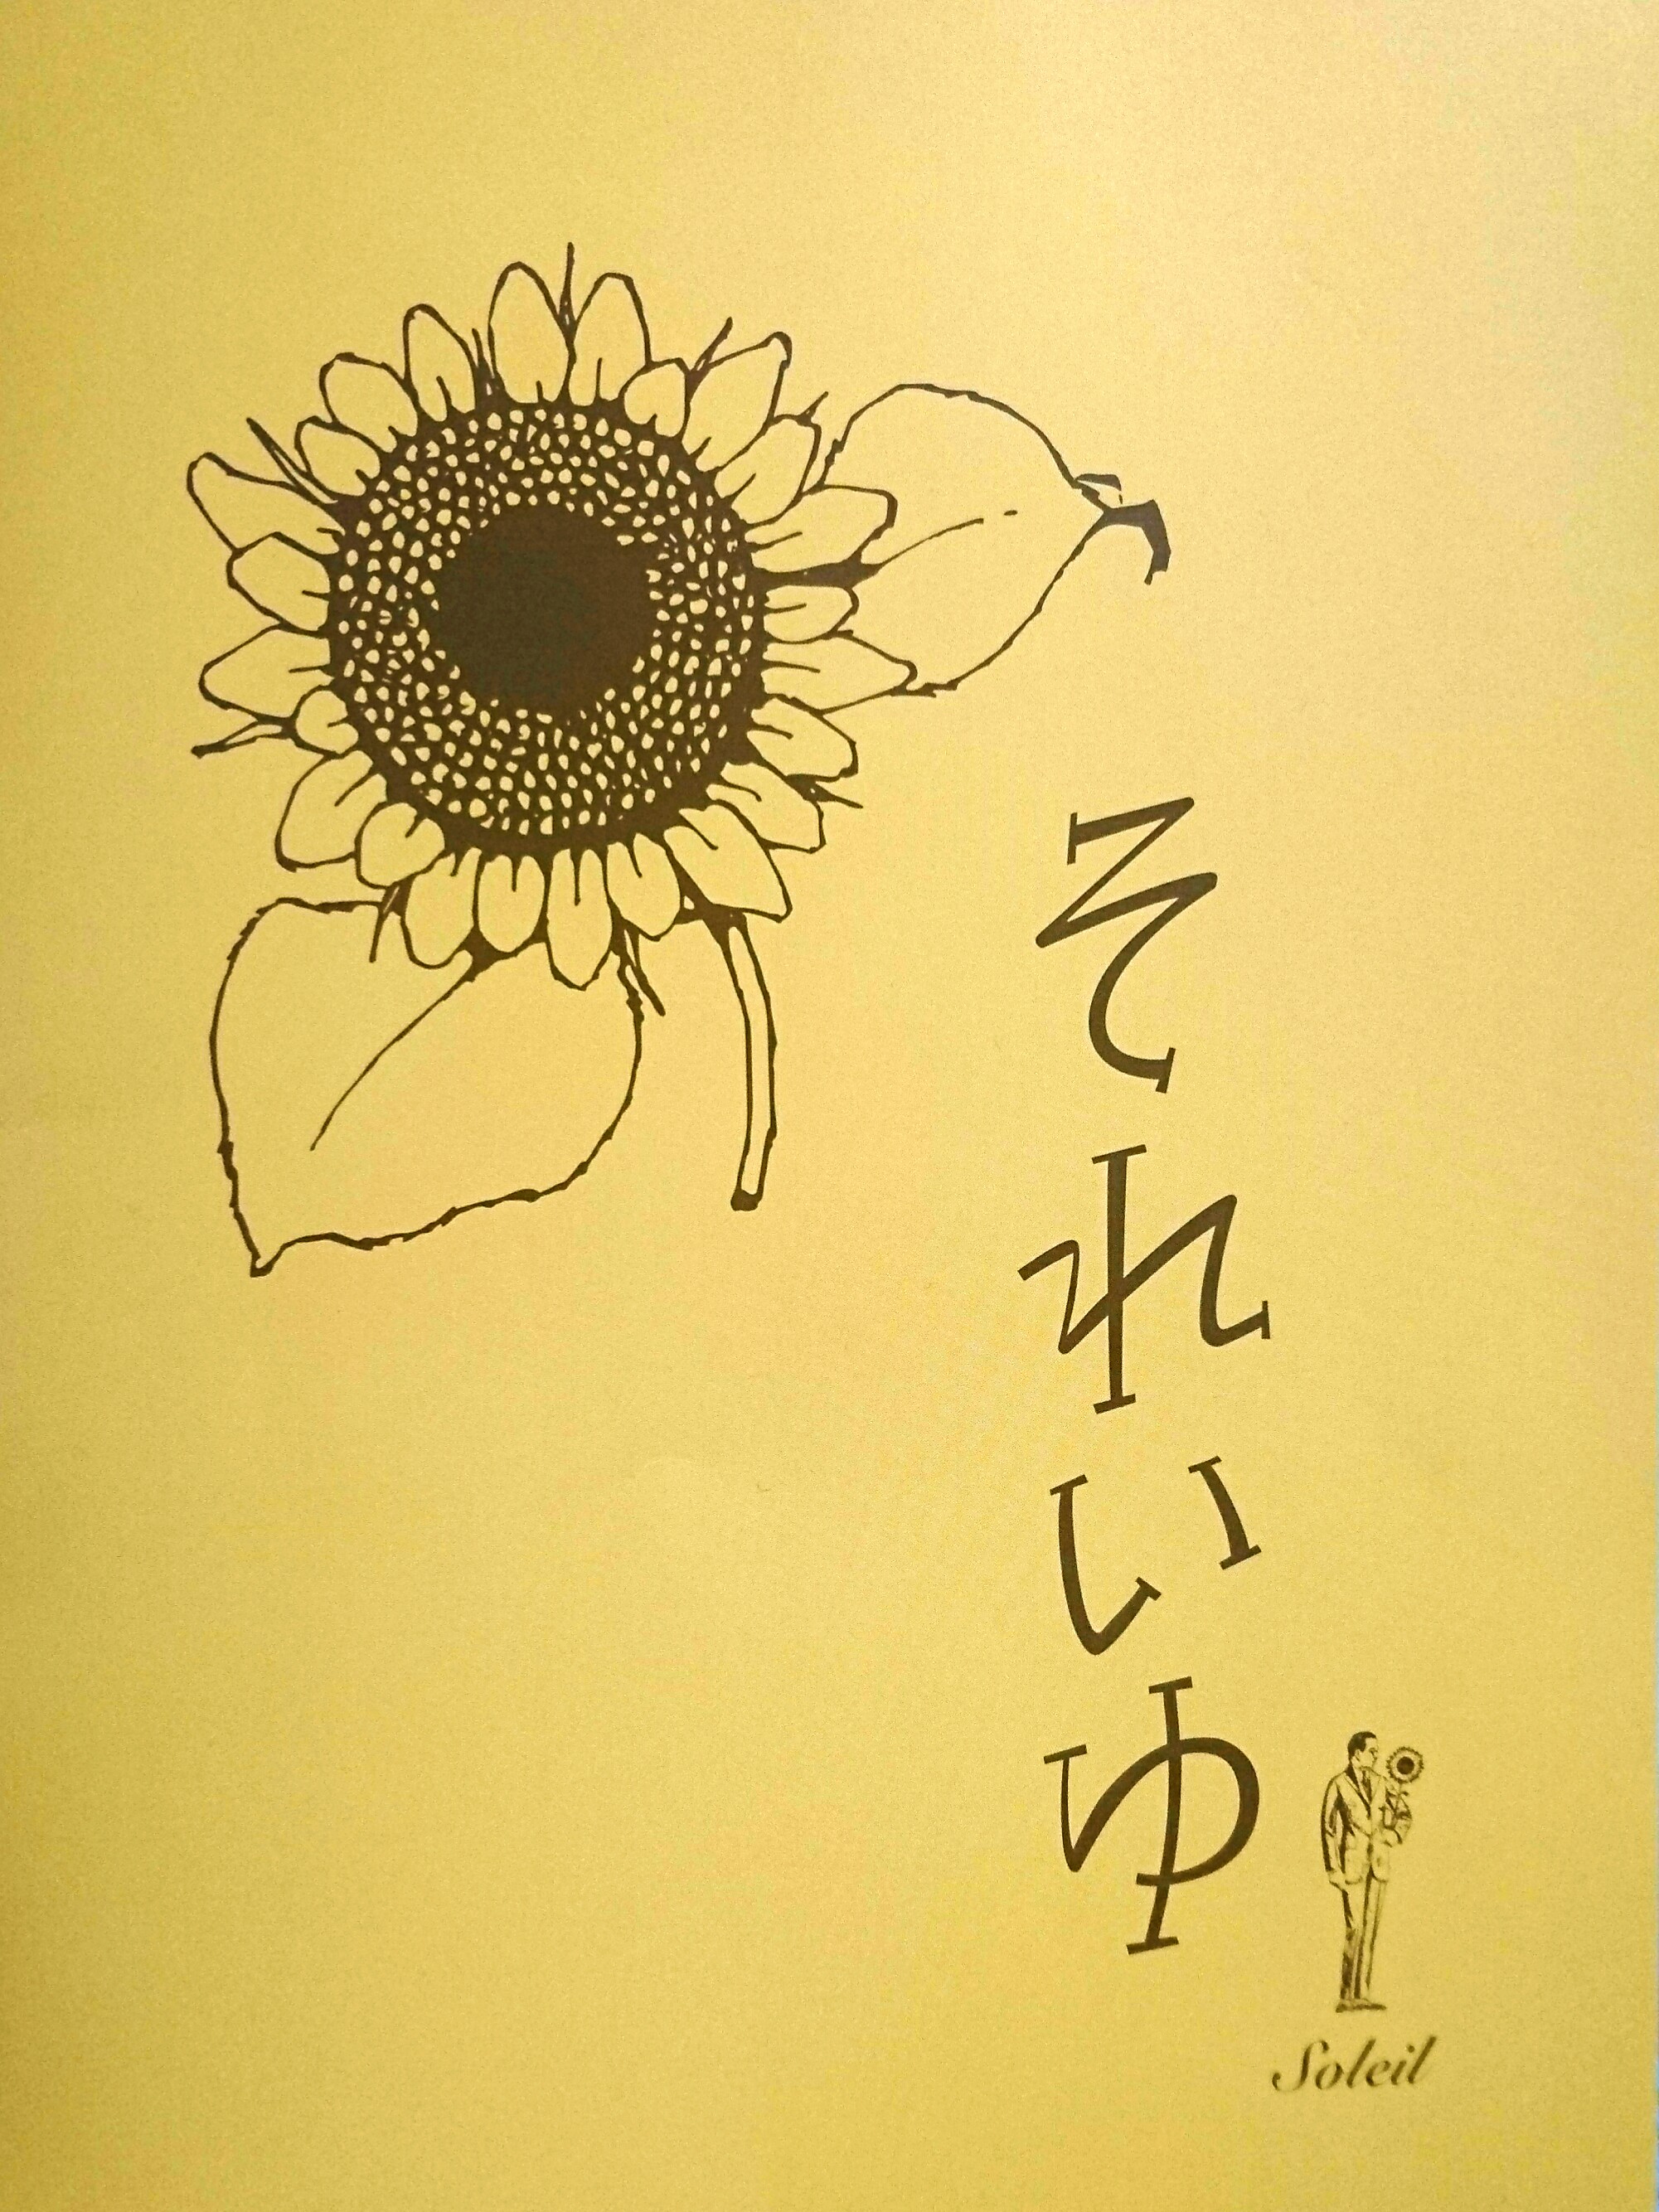 それいゆ
Soleil